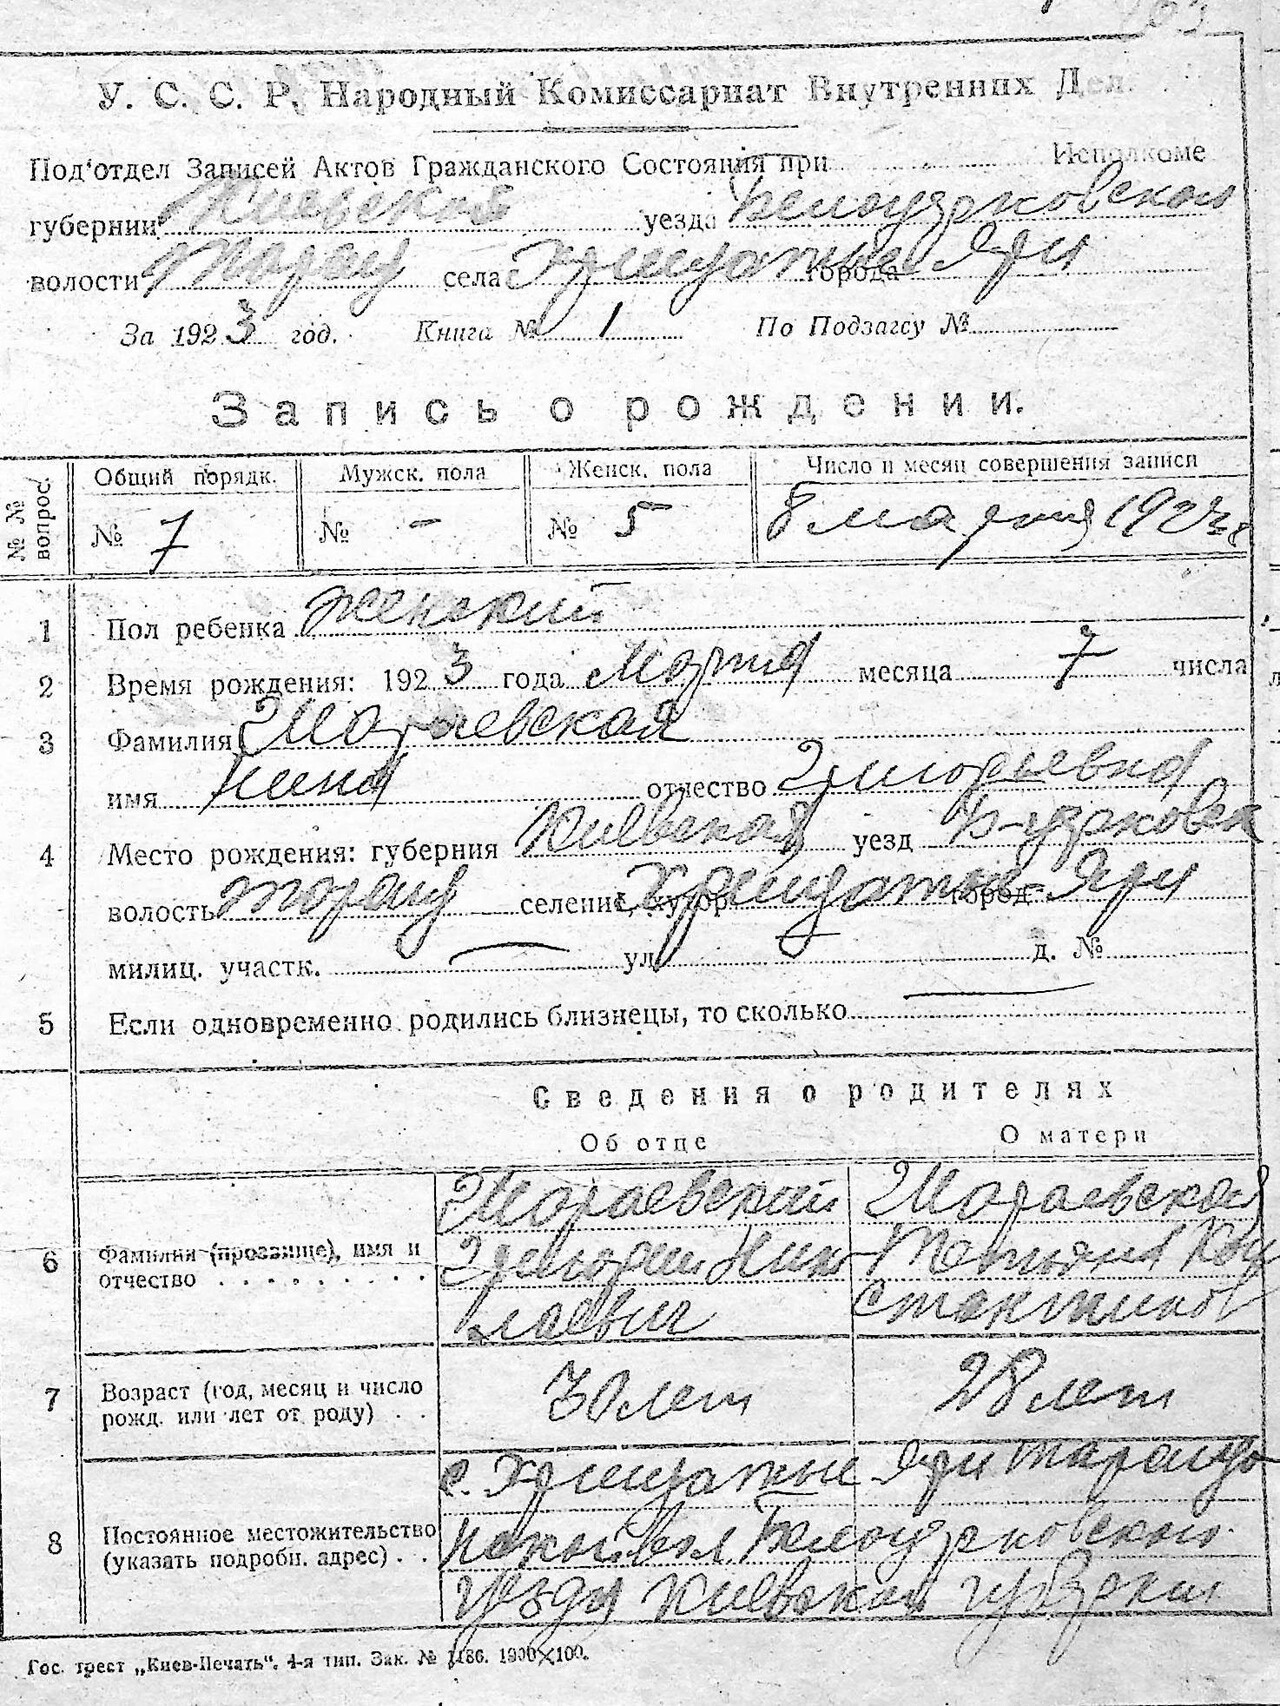 У. С. С. Р. Народный Комиссариат Внутренних Дел.
Под'отдел Записей Актов Гражданского Состояния при Исполкоме
губернии Киевской уезда Белоцерковского
волости села города Яры
За 1923 год. Книга № 1 По Подзагсу №
Запись о рождении.
№ № вопрос.
Общий порядк. Мужск. пола Женск. пола Число и месяц совершения записи
№ 7 № - № 5 8 марта 1923 г
1 Пол ребенка женский
2 Время рождения: 1923 года Марта месяца 7 числа
3 Фамилия Шараевская
имя Нина отчество Григорьевна
4 Место рождения: губерния Киевская уезд Б-церковск
волость селение, хутор город Яры
милиц. участк. ул. д. №
5 Если одновременно родились близнецы, то сколько
Сведения о родителях
Об отце О матери
6 Фамилия (прозвище), имя и отчество
Шараевский Григорий Николаевич
Шараевская Татьяна Константинов
7 Возраст (год, месяц и число рожд. или лет от роду)
30 лет 28 лет
8 Постоянное местожительство (указать подробн. адрес)
с. Яры
вол Белоцерковского
уезда Киевской губернии
Гос. трест „Киев-Печать“. 4-я тип. Зак. № 1186. 1900×100.